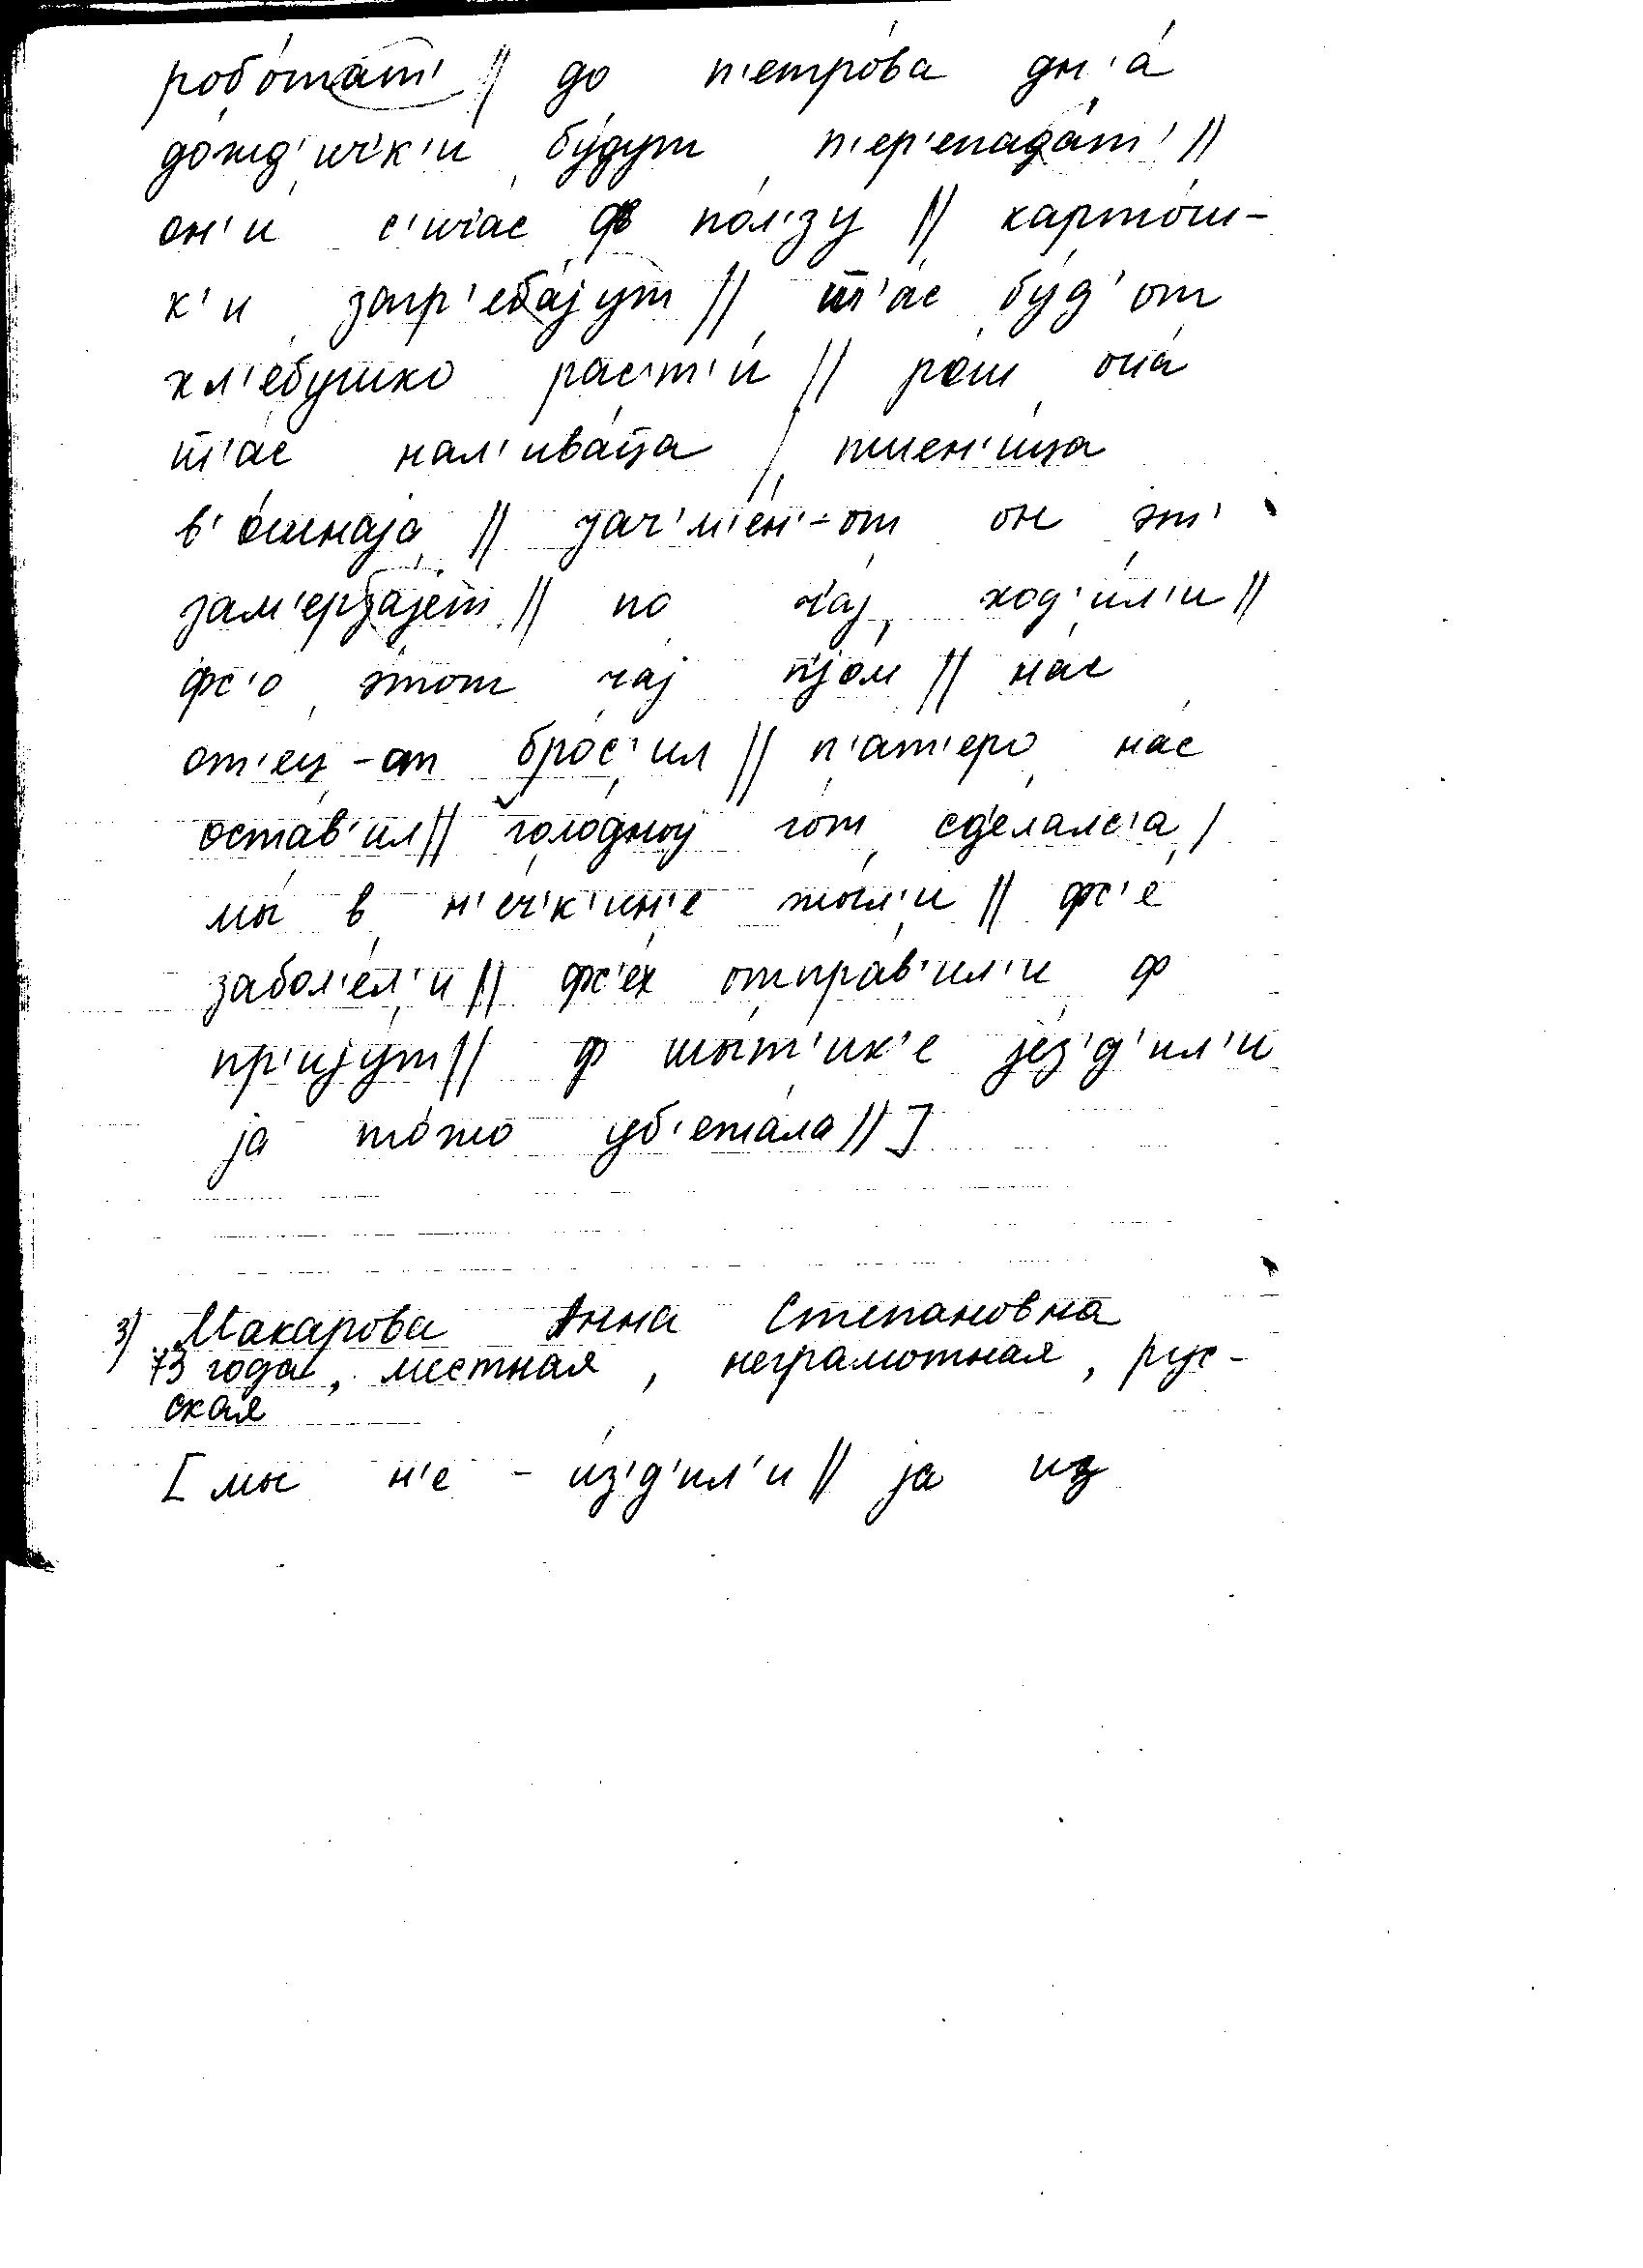 робо́тат' // до п'етро́ва дн'а́
до́жд'ич'к'и бу́дут п'ер'епада́т' //
он'и́ с'ича́с ф по́л'зу // карто́ш-
к'и загр'еба́јут // т'а́с бу́д'от
хл'е́бушко рас'т'и́ // рош она́
т'а́с нал'ива́ца / пшен'и́ца
в'о́шнаја // јач'м'е́н'-от он эт'
зам'ерза́јет // по ча́ј ход'и́л'и //
фс'о э́тот чај пјом // на́с
от'е́ц-от бро́с'ил // п'ат'еро на́с
оста́в'ил // голо́дној го́т сд'елалс'а /
мы́ в н'еч'к'ин'е жы́л'и // фс'е́
забол'е́л'и // фс'е́х отпра́в'ил'и ф
пр'ију́т // ф шы́т'ик'е је́з'д'ил'и
ја то́жо уб'ежа́ла // ]
3) Макарова Анна Степановна
73 года, местная, неграмотная, рус-
ская
[ мы н'е - и́з'д'ил'и // ја из